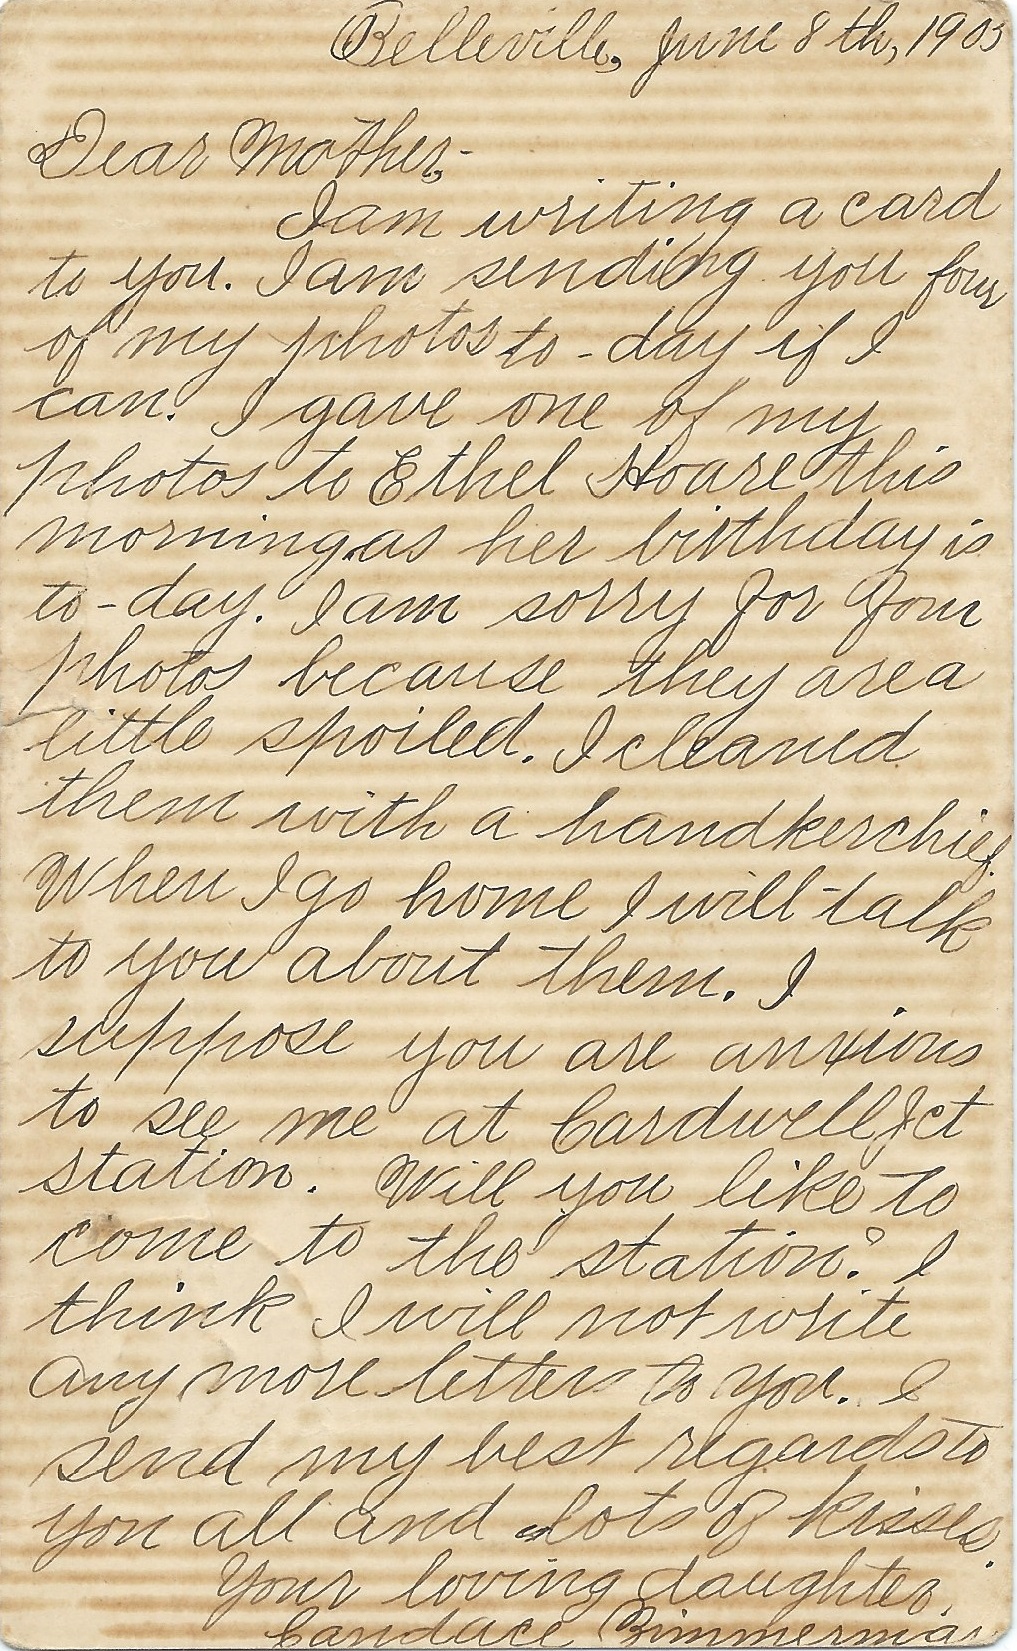 Belleville, June 8th, 1905
Dear Mother,-
I am writing a card
to you. I am sending you four
of my photos to-day if I
can. I gave one of my
photos to Ethel Hoare this
morning as her birthday is
to-day. I am sorry for four
photos because they are a
little spoiled. I cleaned
them with a handkerchief.
When I go home I will talk
to you about them. I
suppose you are anxious
to see me at Cardwell Jct
station. Will you like to
come to the station? I
think I will not write
any more letters to you. I
send my best regards to
you all and lots of kisses.
Your loving daughter,
Candace Zimmerman